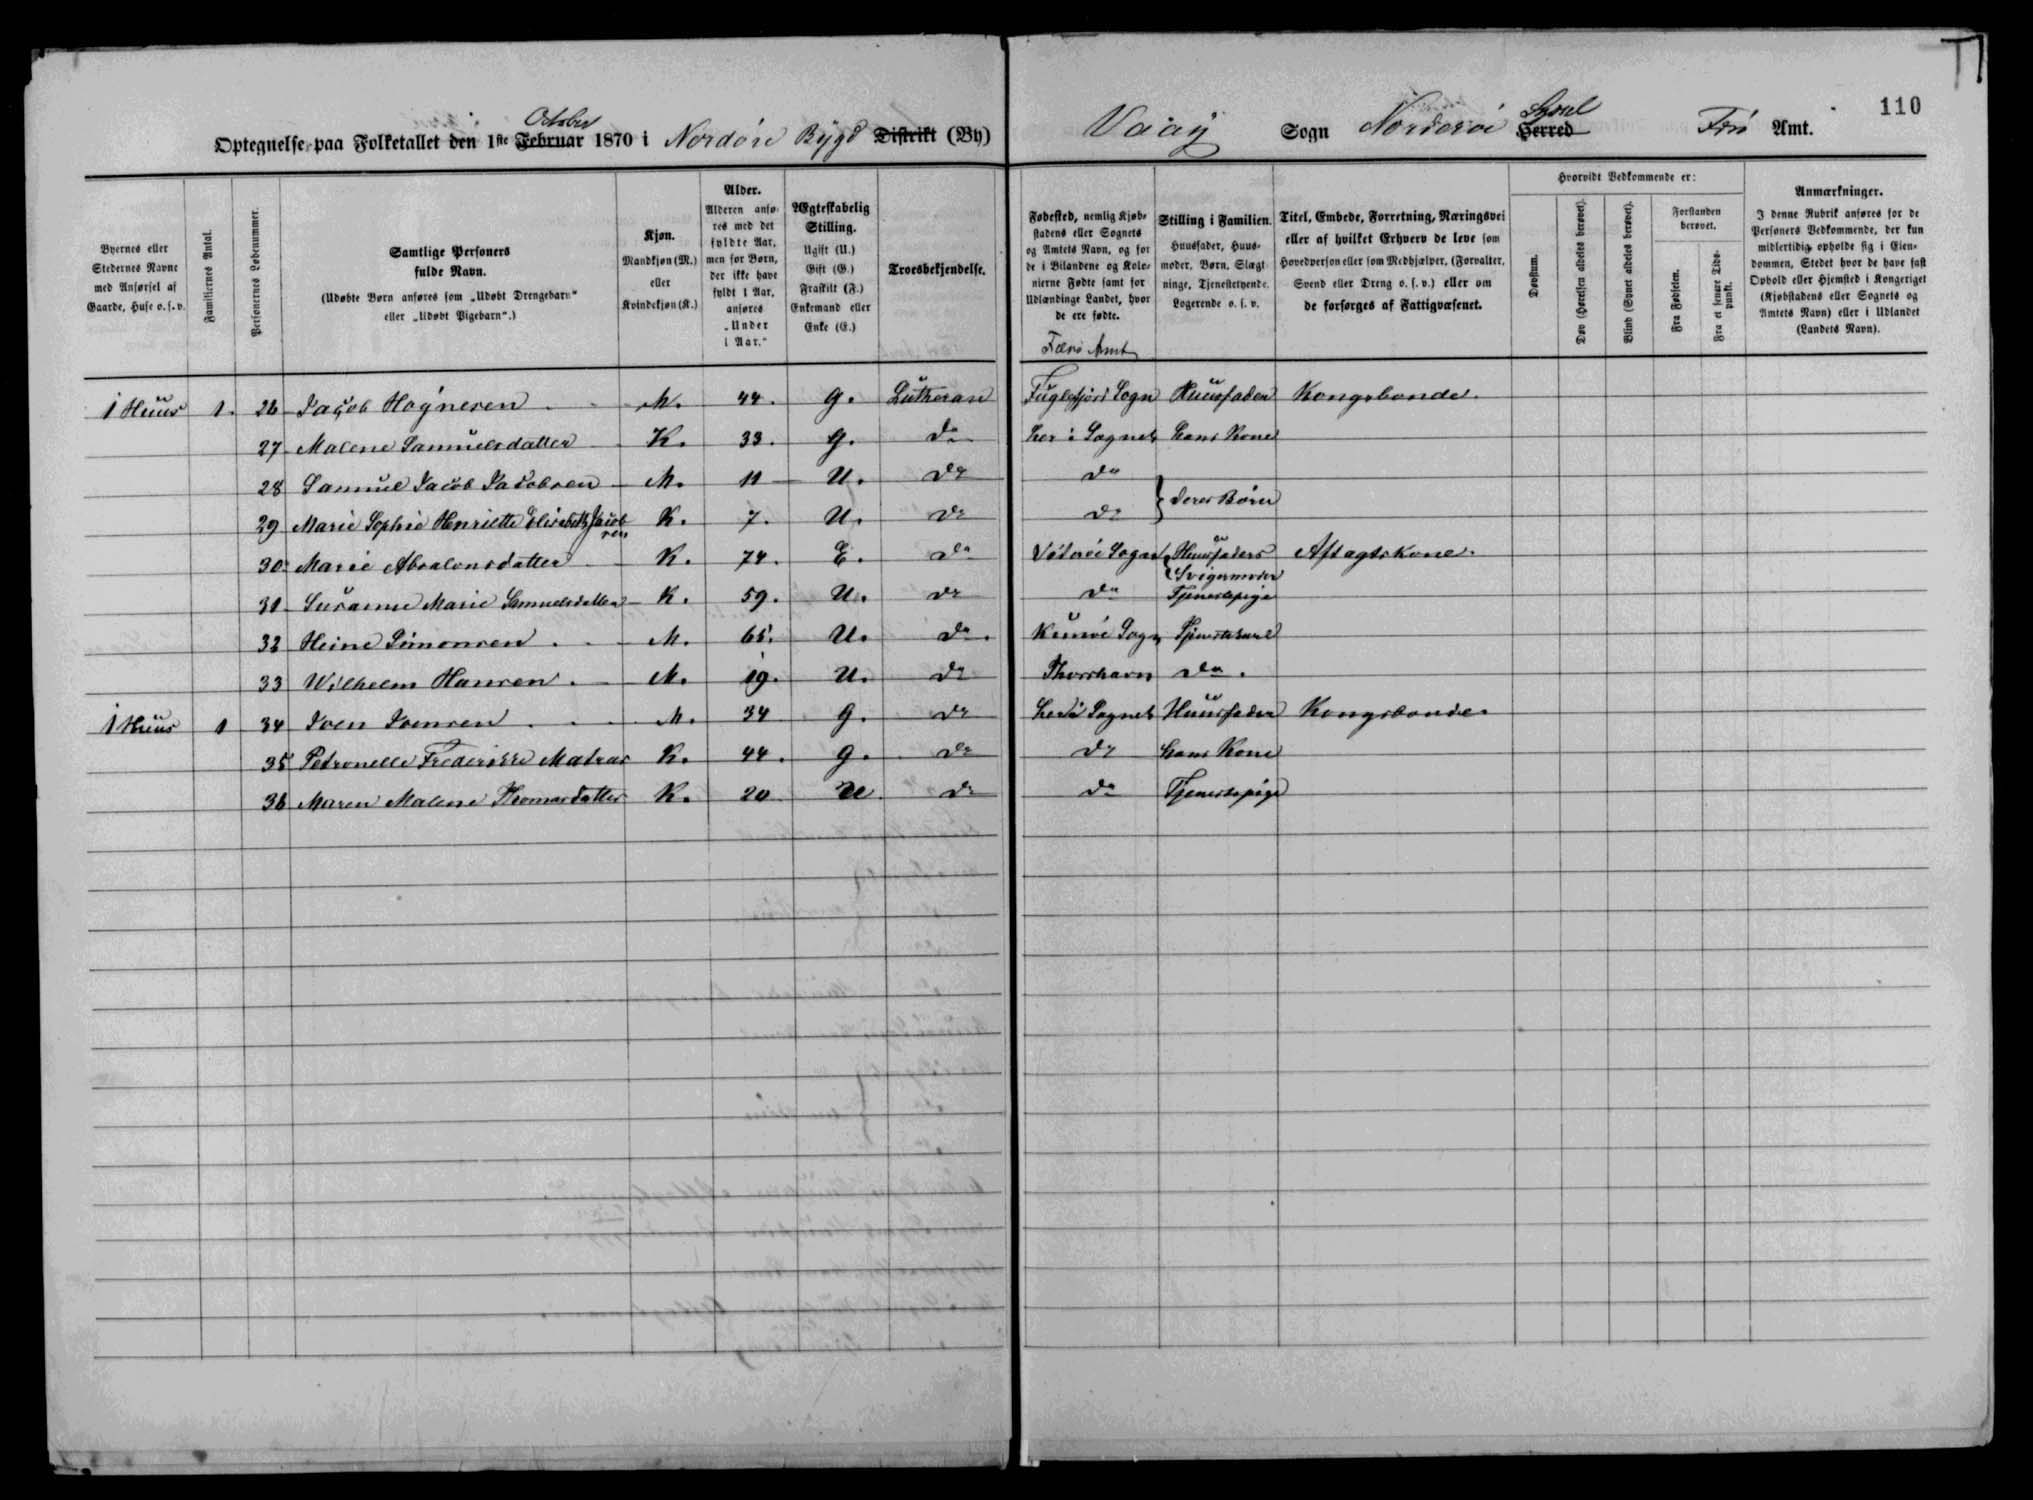 110
Optegnelse paa Folketallet den 1ste Februar October 1870 i Nordöre Bÿgd Distrikt (By) Vaaÿ Sogn Norderöi Herred Syssel Færö Amt.
Byernes eller Stedernes Navne med Anførsel af Gaarde, Huse o. s. v.
Familiernes Antal.
Personernes Løbenummer.
Samtlige Personers fulde Navn.
(Udøbte Børn anføres som „Udøbt Drengebarn“ eller „Udøbt Pigebarn“.)
Kjøn.
Mandkjøn (M.) eller Kvindekjøn (K.)
Alder.
Alderen anføres med det fyldte Aar, men for Børn, der ikke have fyldt 1 Aar, anføres „Under 1 Aar.“
Ægteskabelig Stilling.
Ugift (U.) Gift (G.) Fraskilt (F.) Enkemand eller Enke (E.)
Troesbekjendelse.
Fødested, nemlig Kjøbstadens eller Sognets og Amtets Navn, og for de i Bilandene og Kolonierne Fødte samt for Udlændinge Landet, hvor de ere fødte.
Færö Amt
Stilling i Familien.
Huusfader, Huusmoder, Børn, Slægtninge, Tjenestetyende, Logerende o. s. v.
Titel, Embede, Forretning, Næringsvei eller af hvilket Erhverv de leve som Hovedperson eller som Medhjælper, (Forvalter, Svend eller Dreng o. s. v.) eller om de forsørges af Fattigvæsenet.
Hvorvidt Vedkommende er:
Døvstum.
Døv (Hørelsen aldeles berøvet).
Blind (Synet aldeles berøvet).
Forstanden berøvet.
Fra Fødselen.
Fra et senere Tidspunkt.
Anmærkninger.
I denne Rubrik anføres for de Personers Vedkommende, der kun midlertidig opholde sig i Eiendommen, Stedet hvor de have fast Ophold eller Hjemsted i Kongeriget (Kjøbstadens eller Sognets og Amtets Navn) eller i Udlandet (Landets Navn).
1 Huus 1. 26 Jacob Hognesen M. 44. G. Lutheran Fuglefjord Sogn Huusfader Kongsbonde.
27 Malene Samuelsdatter K. 33. G. do her i Sognet hans Kone
28 Samuel Jacob Jacobsen M. 11 U. do do
29 Marie Sophie Henriette Elisabeth Jacobsen K. 7. U. do do } deres Börn
30 Marie Absalonsdatter K. 74. E. do Sogn Huusfaders Svigermoder Aftagtskone.
31 Susanne Marie Samuelsdatter K. 59. U. do do Tjenestepige
32 Heine Simonsen M. 65. U. do. Kunöi Sogn Tjenestekarl
33 Wilhelm Hansen M. 19. U. do Thorshavn do.
1 Huus 1 34 Joen Joensen M. 34 G. do her i Sognet Huusfader Kongsbonde.
35 Petronelle Frederikke Matras K. 44. G. do do hans Kone
36 Maren Malene Thomasdatter K. 20 U do do Tjenestepige